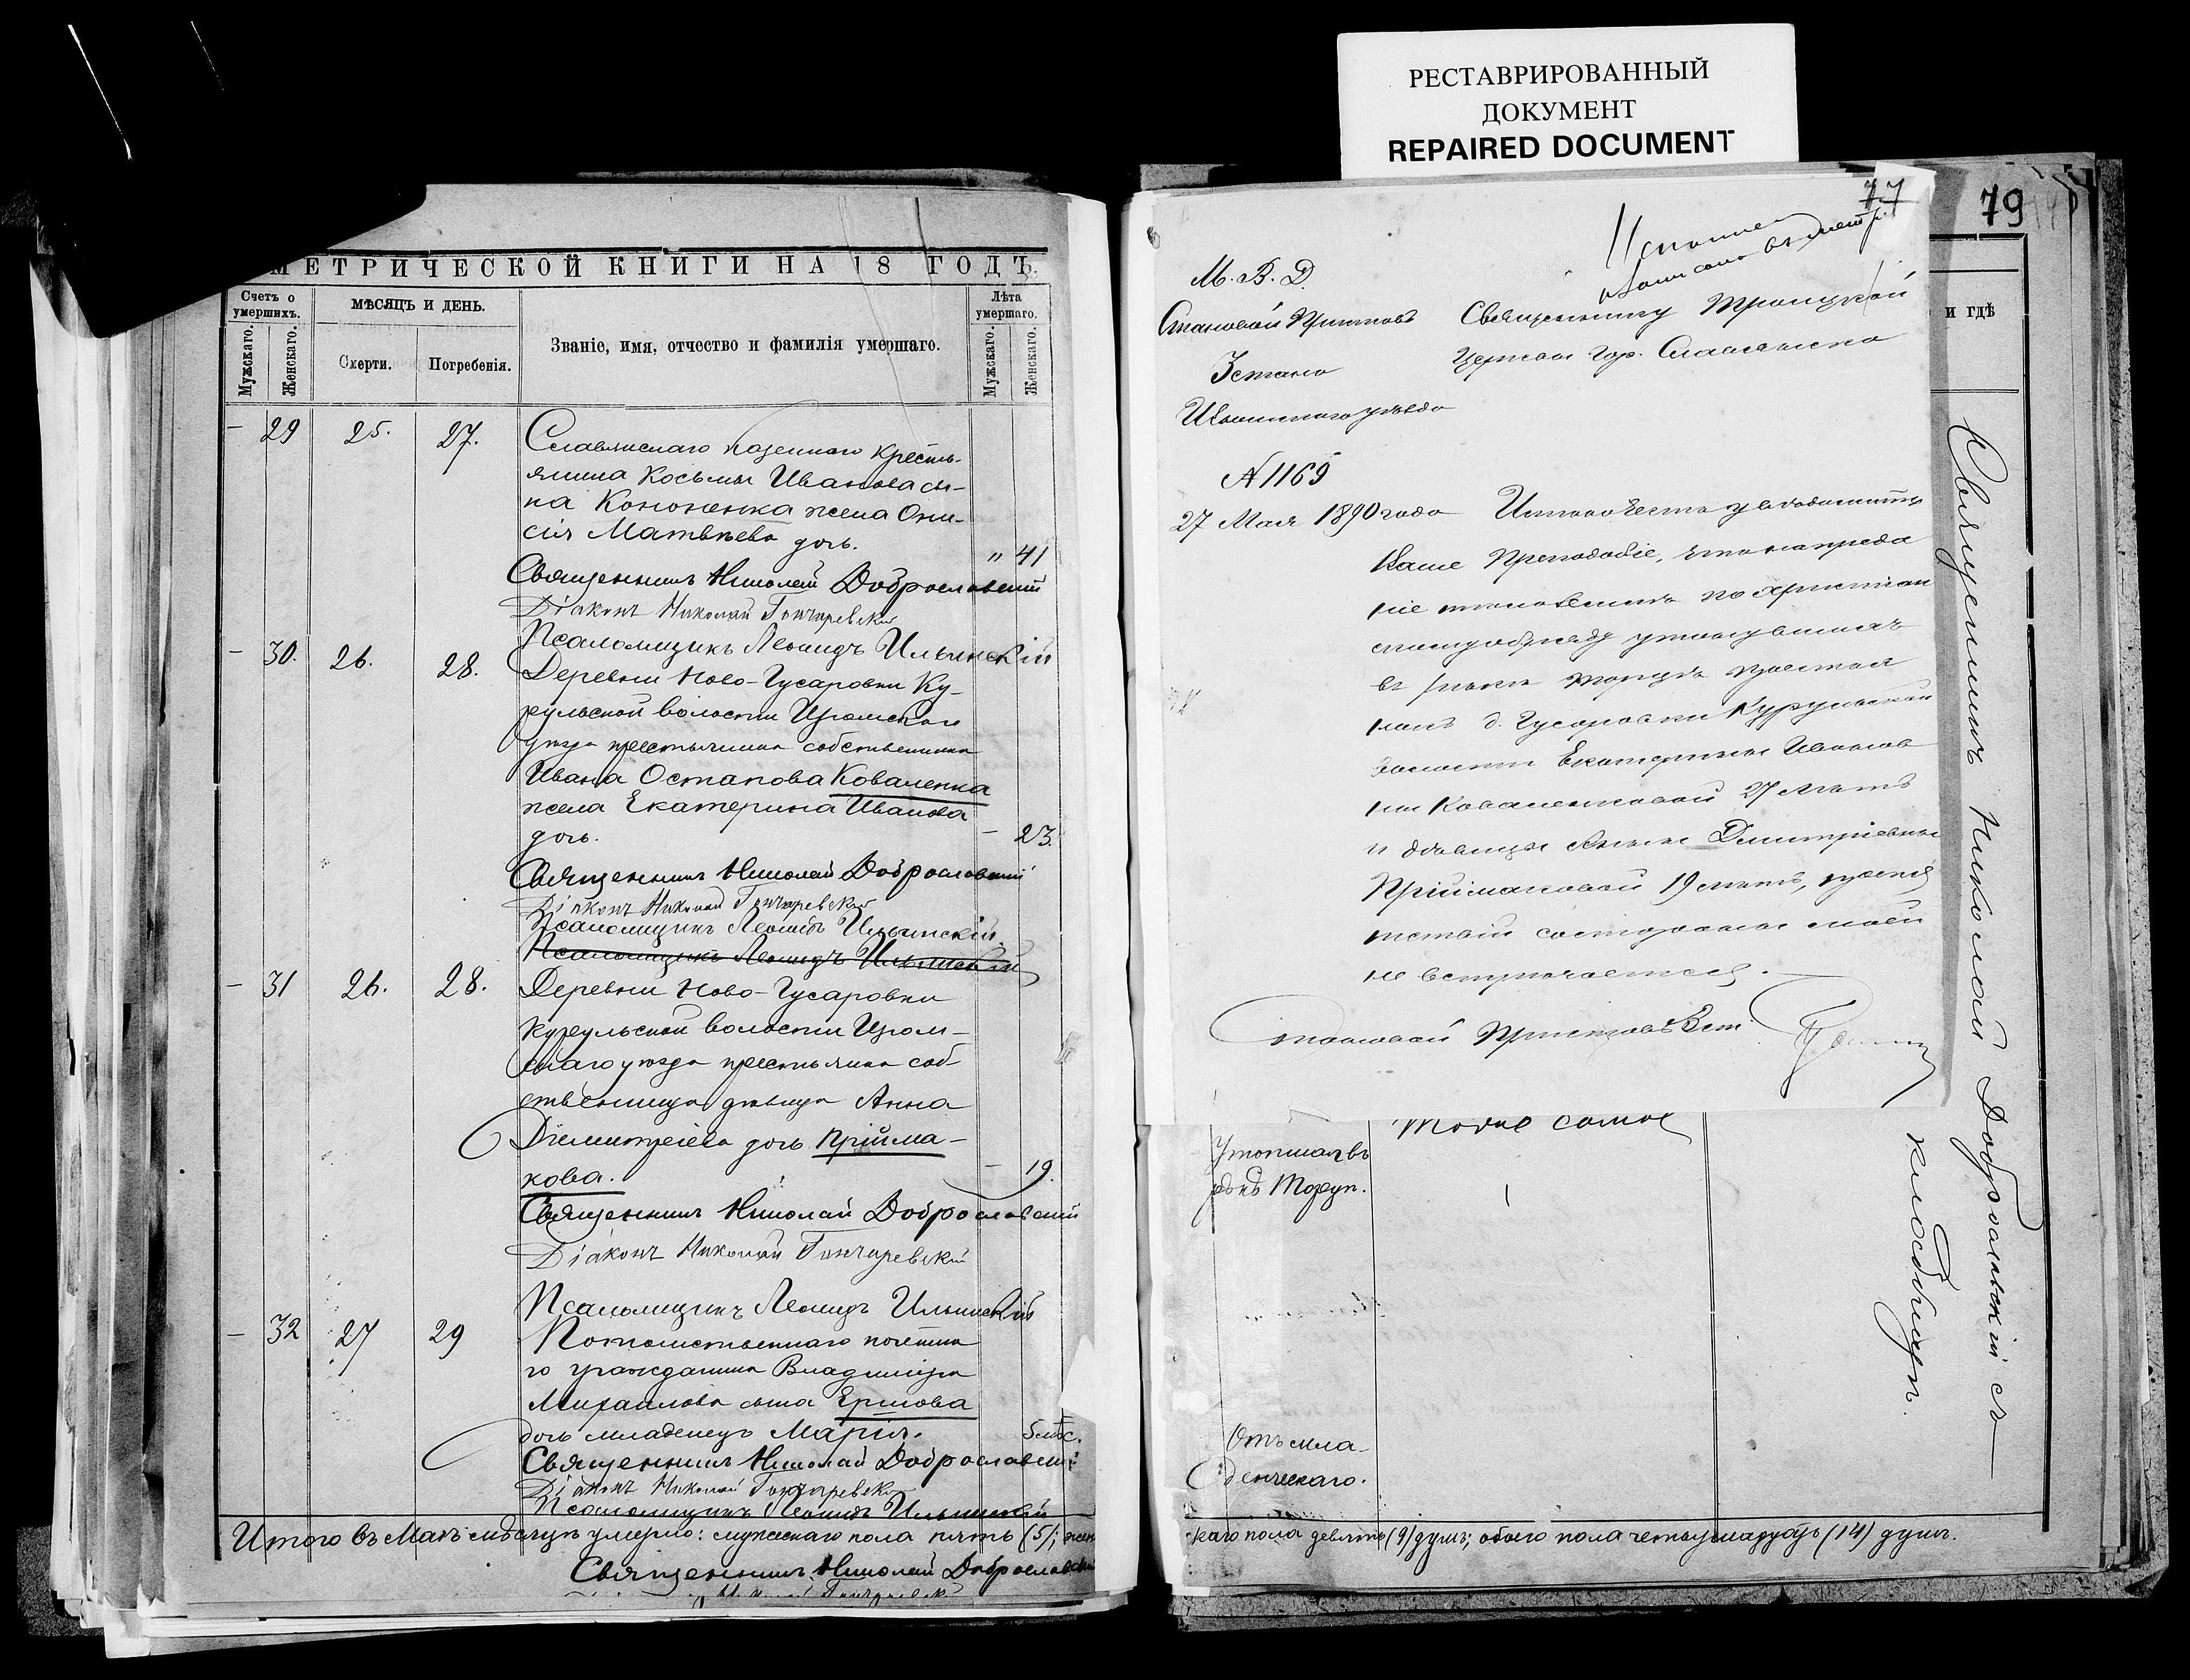 РЕСТАВРИРОВАННЫЙ
ДОКУМЕНТ
REPAIRED DOCUMENT
МЕТРИЧЕСКОЙ КНИГИ НА 18 ГОДЪ.
Счетъ о умершихъ.
Мужскаго.
Женскаго.
МѢСЯЦЪ И ДЕНЬ.
Смерти.
Погребенія.
Званіе, имя, отчество и фамилія умершаго.
Лѣта умершаго.
Мужскаго.
Женскаго.
– 29 25. 27. Славянскаго казеннаго кресть-
янина Косьмы Иванова сы-
на Кононенка жена Они-
сія Матвѣева дочь.
" 41
Священникъ Николай Доброславскій
Діаконъ Николай Гончаревскій
Псаломщикъ Леонидъ Ильинскій
– 30. 26. 28. Деревни Ново-Гусаровки Ку-
рульской волости Изюмскаго
уѣзда крестьянина собственника
Ивана Остапова Коваленка
жена Екатерина Иванова
дочь. – 23.
Священникъ Николай Доброславскій
Діаконъ Николай Гончаревскій
Псаломщикъ Леонидъ Ильинскій.
Псаломщикъ Леонидъ Ильинскій
– 31 26. 28. Деревни Ново-Гусаровки
Курульской волости Изюм-
скаго уѣзда крестьянина соб-
ственница дѣвица Анна
Димитріева дочь Прійма-
кова. – 19.
Священникъ Николай Доброславскій
Діаконъ Николай Гончаревскій
Псаломщикъ Леонидъ Ильинскій
– 32 27 29 Потомственнаго почетна
го гражданина Владиміра
Михаилова сына Ершова
дочь младенецъ Марія. 5 мѣс.
Священникъ Николай Доброславскій
Діаконъ Николай Гончаревскій
Псаломщикъ Леонидъ Ильинскій
Итого въ Маѣ мѣсяцѣ умерло: мужскаго пола пять (5); жен
Священникъ Николай Доброславскій
77
79
и гдѣ
М. В. Д.
Становой Приставъ
3 стана
Изюмскаго уѣзда
N 1169
27 Мая 1890 года
Священнику Троицкой
Церкви Гор. Славянска
Имѣю честь увѣдомить
Ваше Преподобіе, что на преда
ніе землѣ по христіан
скому обряду утонувшихъ
въ рѣкѣ Торцѣ крестья
нокъ д. Гусаровки Курульской
волости Екатерины Иванов
ны Коваленковой 27 лѣтъ
и дѣвицы Анны Дмитріевны
Пріймаковой 19 лѣтъ, препят
ствій со стороны моей
не встрѣчается.
Становой Приставъ 3 ст.
Тоже самое
Утопшая въ
рѣкѣ Торцѣ.
Отъ мла-
денческаго.
скаго пола девять (9) душъ; обоего пола четырнадцать (14) душъ.
Священникъ Николай Доброславскій съ